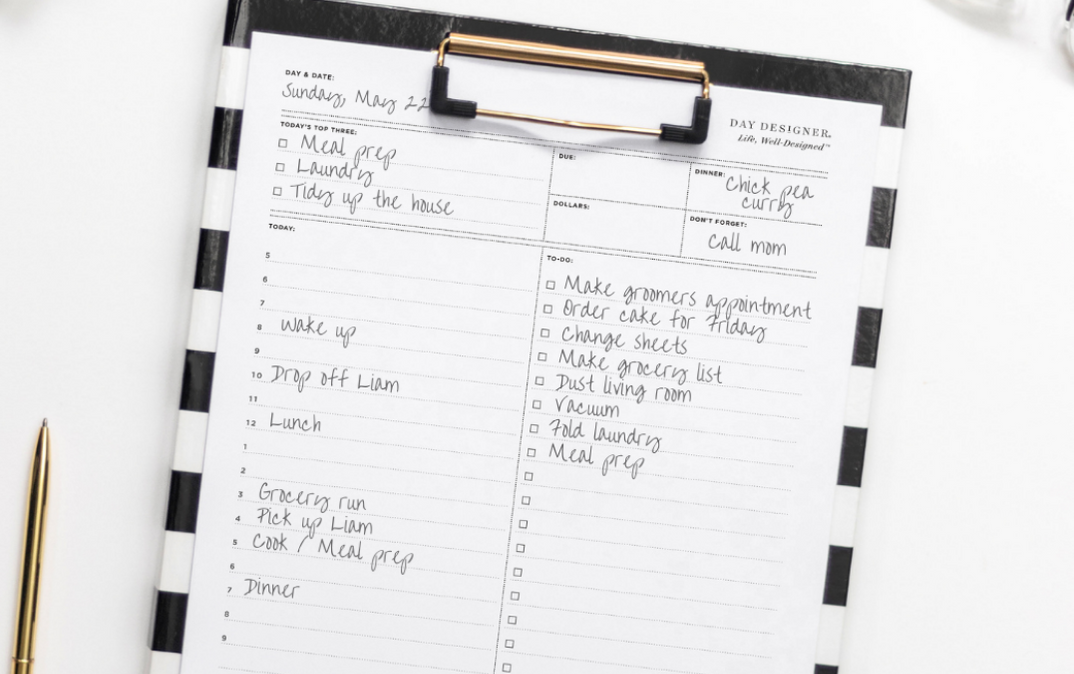 DAY & DATE:
Sunday, May 22
DAY DESIGNER.
Life, Well-Designed™
TODAY'S TOP THREE:
Meal prep
Laundry
Tidy up the house
DUE:
DOLLARS:
DINNER:
Chick pea
curry
DON'T FORGET:
Call mom
TODAY:
5
6
7
8 Wake up
9
10 Drop off Liam
11
12 Lunch
1
2
3 Grocery run
4 Pick up Liam
5 Cook / Meal prep
6
7 Dinner
8
9
TO-DO:
Make groomers appointment
Order cake for Friday
Change sheets
Make grocery list
Dust living room
Vacuum
Fold laundry
Meal prep